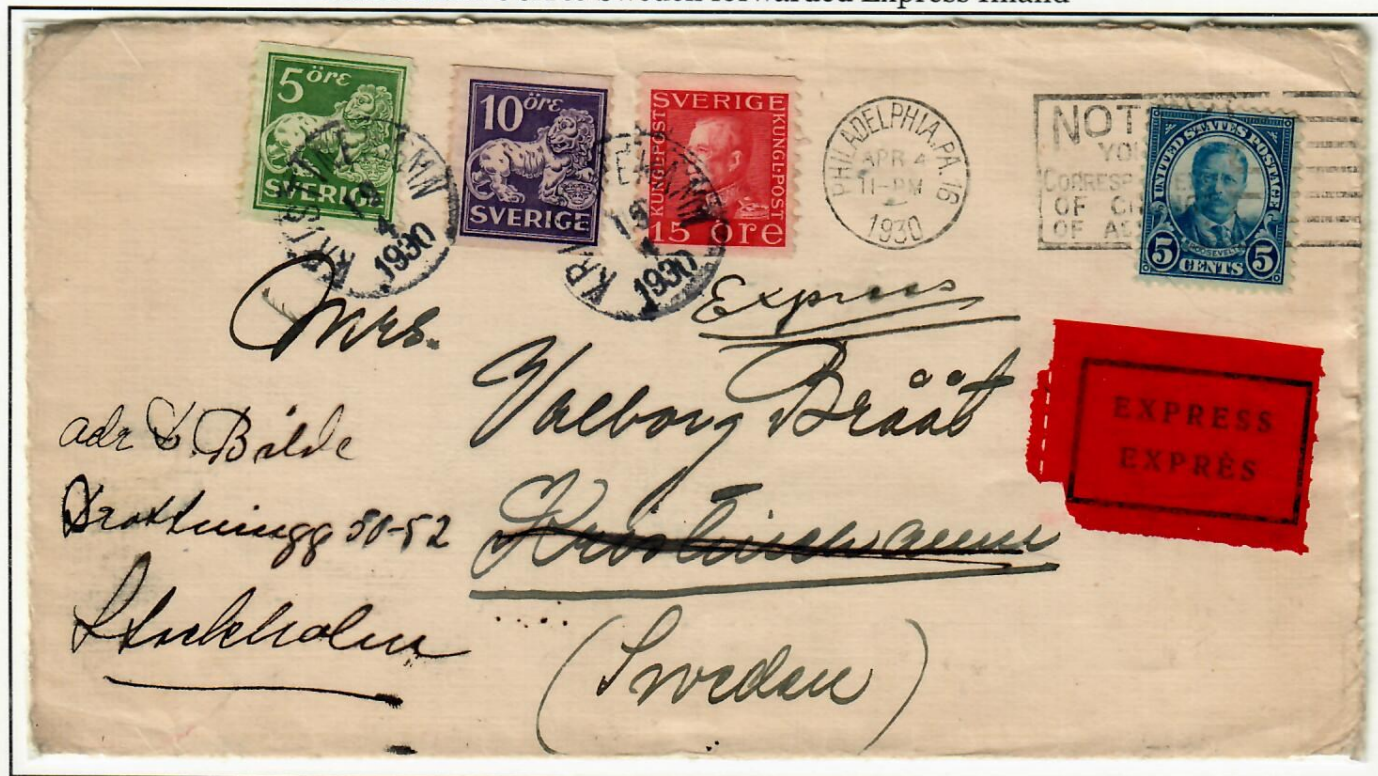 to Sweden forwarded Express Inland
5 öre
SVERIGE
10 öre
SVERIGE
SVERIGE
KUNGL-POST
KUNGL-POST
15 öre
1930
1930
PHILADELPHIA, PA. 16
APR 4
11-PM
1930
NOT
YOU
CORRESP
OF
OF
UNITED STATES POSTAGE
ROOSEVELT
5 CENTS 5
Express
Mrs.
Valborg Brååt
Kristinehamn
(Sweden)
adr
Drottningg 50-52
Stockholm
EXPRESS
EXPRÈS